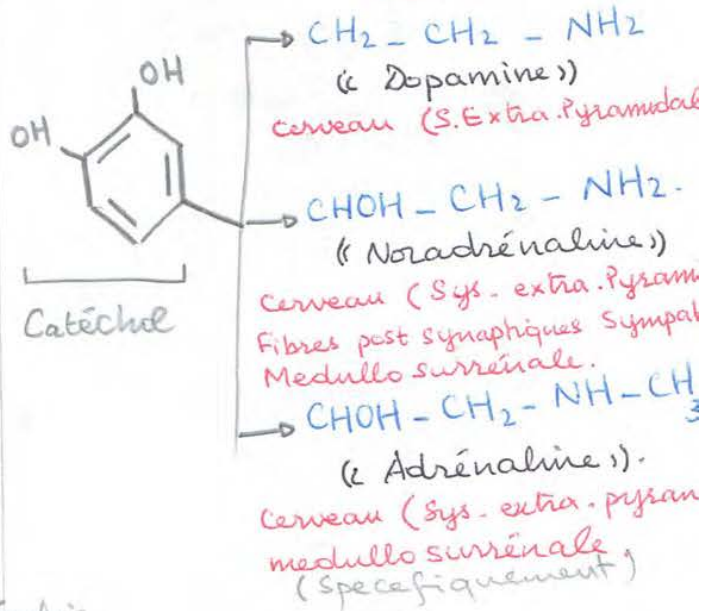 OH
OH
Catéchol
CH2 - CH2 - NH2
(( Dopamine ))
cerveau (S.Extra.Pyramidal
CHOH - CH2 - NH2.
(( Noradrénaline ))
Cerveau (Sys. extra.Pyrami
Fibres post synaphiques Sympat
Medullo surrénale.
CHOH - CH2 - NH - CH3
(( Adrénaline )).
Cerveau (Sys. extra. pyram
medullo surrénale,
(Specefiquement)